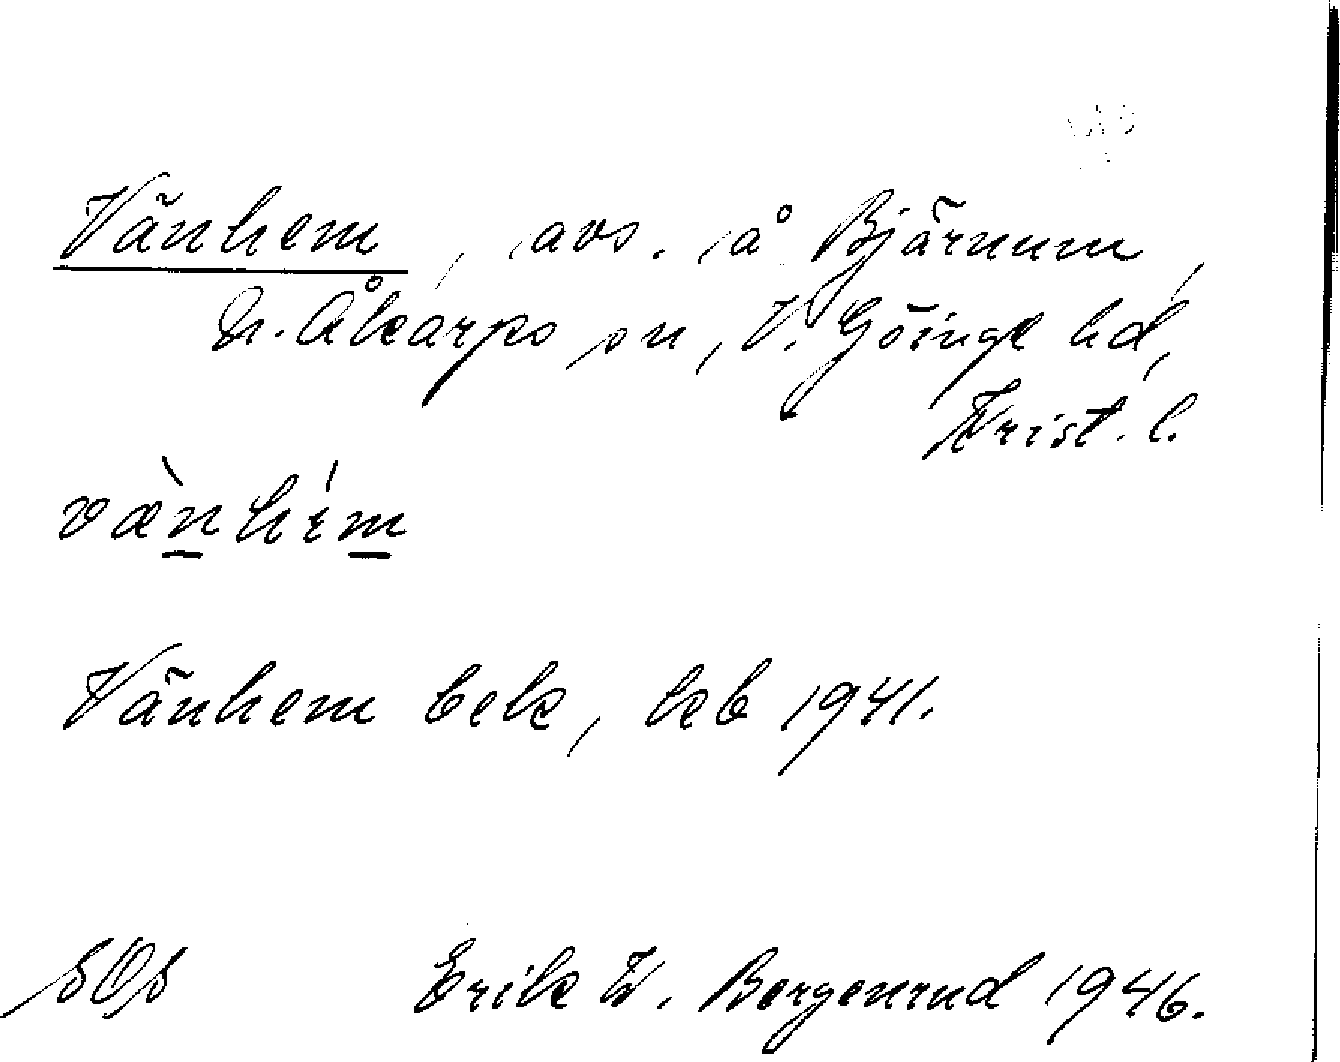 Vänhem, avs. å Bjärnum,
N. Åkarps sn, V. Göinge hd,
Krist. l.
væ̀nhém
Vänhem bek, kb 1941.
SOS Erik W. Bergenrud 1946.